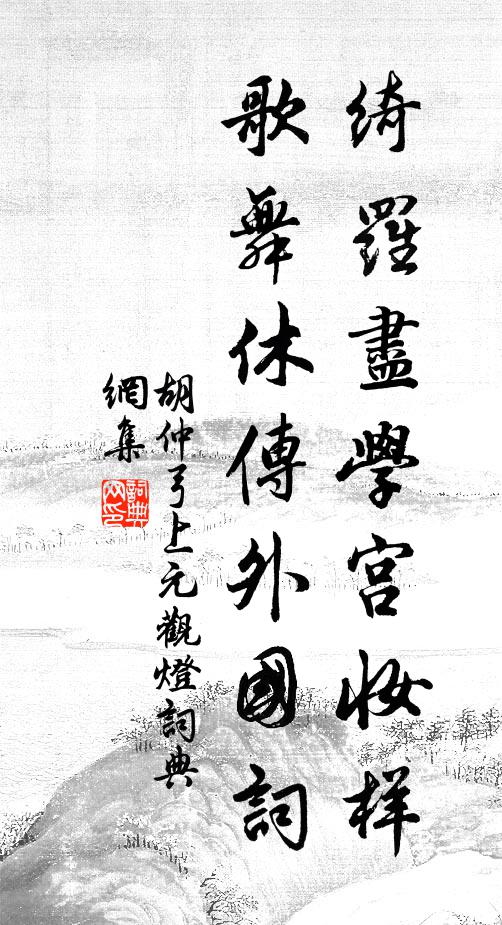 綺羅盡學宮妝樣
歌舞休傳外國詞
胡仲弓上元觀燈詞典
網集
詞典
网印